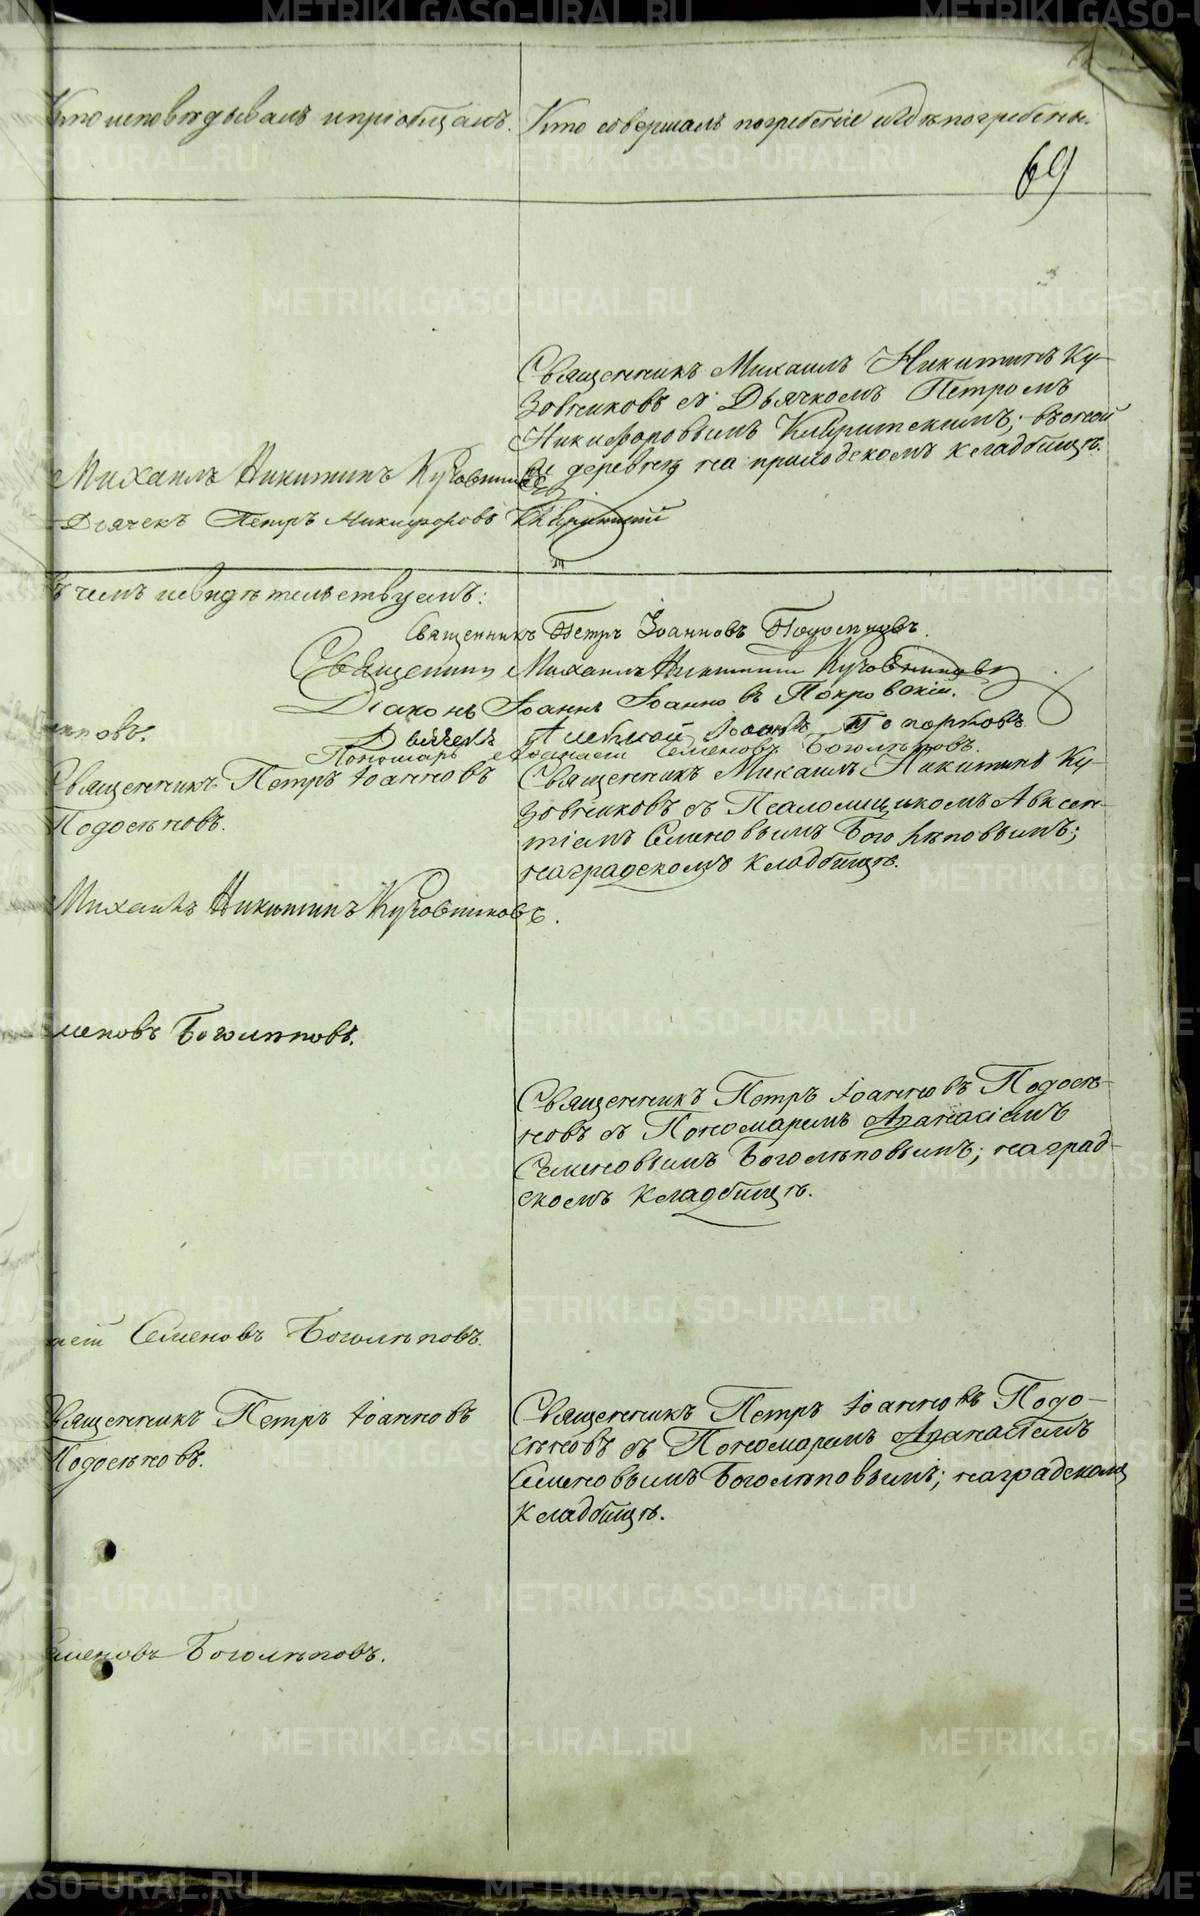 Кто исповѣдывалъ и пріобщалъ.
Кто совершалъ погребеніе и гдѣ погребены.
69
Священникъ Михаилъ Никитинъ Ку-
зовниковъ съ Дьячкомъ Петромъ
Никифоровымъ
деревнѣ на приходскомъ кладбищѣ.
Михаилъ Никитинъ Кузовников
Дьячекъ Петръ Никифоровъ
въ чемъ и свидѣтельствуемъ:
Священникъ Петръ Іоанновъ Подосеновъ.
Священникъ Михаилъ Никитинъ Кузовниковъ
Діаконъ Іоаннъ Іоанновъ Покровскій.
Дьячекъ Топорковъ
Пономарь Семеновъ Боголѣповъ.
повъ.
Священникъ Петръ Іоанновъ
Подосѣновъ.
Священникъ Михаилъ Никитинъ Ку-
зовниковъ съ Псаломщикомъ Авксен-
тіемъ Семеновымъ Боголѣповымъ;
на градскомъ кладбищѣ.
Михаилъ Никитинъ Кузовниковъ.
меновъ Боголѣповъ.
Священникъ Петръ Іоанновъ Подосѣ-
новъ съ Пономаремъ Аѳанасіемъ
Семеновымъ Боголѣповымъ; на град-
скомъ кладбищѣ.
Семеновъ Боголѣповъ.
Священникъ Петръ Іоанновъ
Подосѣновъ.
Священникъ Петръ Іоанновъ Подо-
сѣновъ съ Пономаремъ Аѳанасіемъ
Семеновымъ Боголѣповымъ; на градскомъ
кладбищѣ.
еменовъ Боголѣповъ.
METRIKI.GASO-URAL.RU